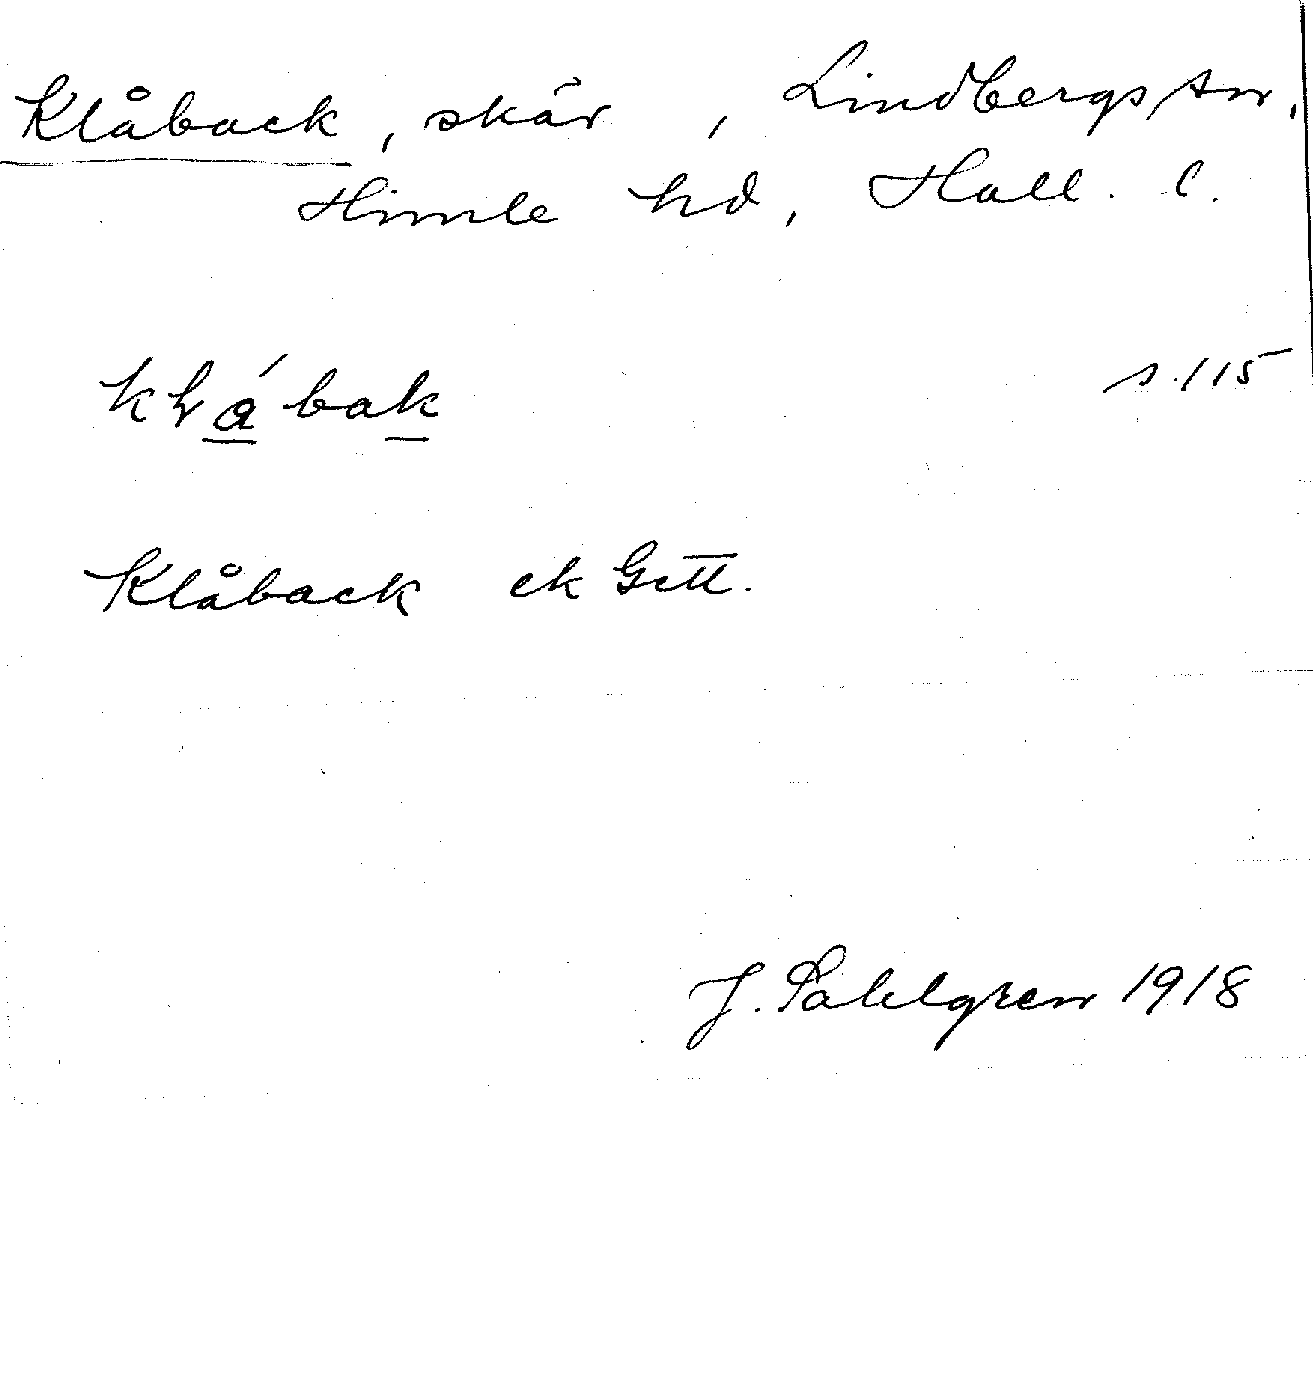 Klåback, skär, Lindbergs sn.
Himle hd, Hall. l.
s. 115
Klåback ek Gett.
J. Sahlgren 1918